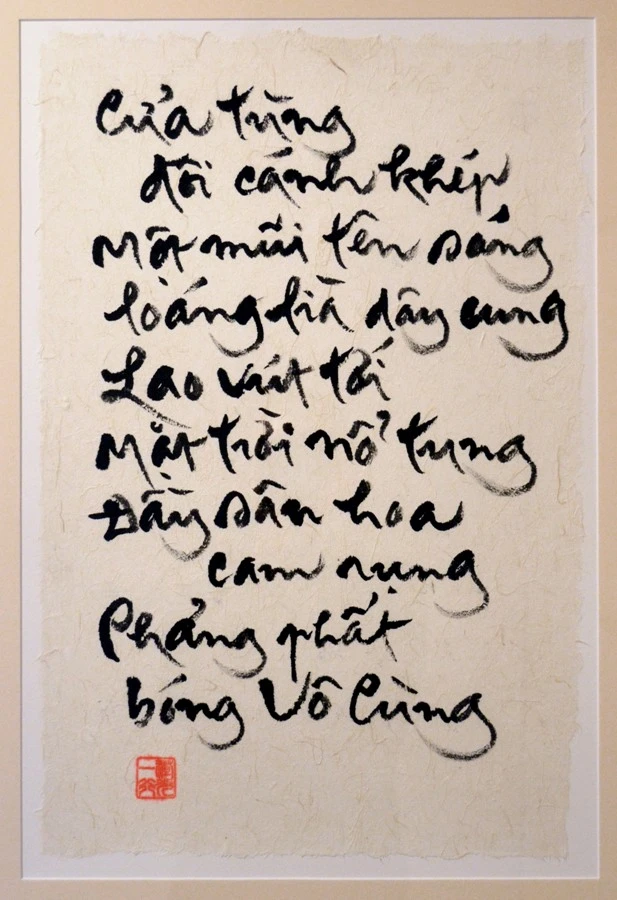 Cửa tùng
đôi cánh khép
Một mũi tên sáng
loáng lìa dây cung
Lao vút tới
Mặt trời nổ tung
Đầy sân hoa
cam rụng
Phảng phất
bóng Vô Cùng